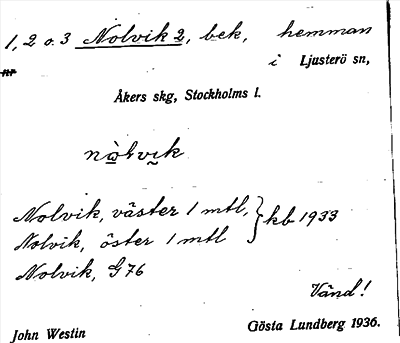 1, 2 o. 3 Nolvik 2, bek, hemman
i Ljusterö sn,
nr
Åkers skg, Stockholms l.
nòlvik
Nolvik, väster 1 mtl, } kb 1933
Nolvik, öster 1 mtl
Nolvik, G 76
Vänd!
John Westin Gösta Lundberg 1936.